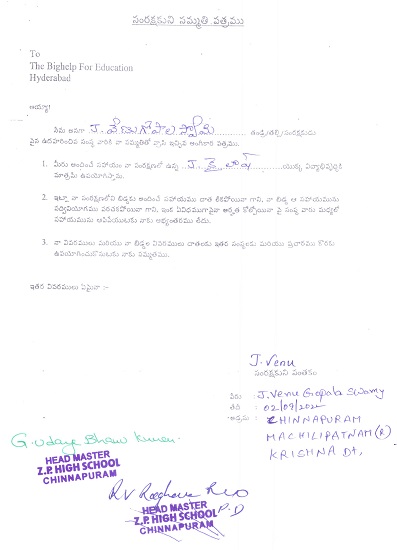 సంరక్షకుని సమ్మతి పత్రము
To
The Bighelp For Education
Hyderabad
అయ్యా!
నేను అనగా J. వేణుగోపాల స్వామి తండ్రి/తల్లి/సంరక్షకుడు
పైన ఉదహరించిన సంస్థ వారికి నా సమ్మతితో వ్రాసి ఇచ్చిన అంగీకార పత్రము.
1. మీరు అందించే సహాయం నా సంరక్షణలో ఉన్న J. కైలాష్ యొక్క విద్యాభివృద్ధికి
మాత్రమే ఉపయోగిస్తాను.
2. ఇట్లా నా సంరక్షణలోని బిడ్డకు అందించే సహాయము దాత లేకపోయినా గాని, నా బిడ్డ ఆ సహాయమును
సద్వినియోగము పరచకపోయినా గాని, ఇంక ఏవిధముగానైనా అర్హత కోల్పోయినా పై సంస్థ వారు మధ్యలో
సహాయమును ఆపివేయుటకు నాకు అభ్యంతరము లేదు.
3. నా వివరములు మరియు నా బిడ్డల వివరములు దాతలకు ఇతర సంస్థలకు మరియు ప్రచారము కొరకు
ఉపయోగించుకొనుటకు నాకు సమ్మతము.
ఇతర వివరములు ఏమైనా :-
J. Venu
సంరక్షకుని సంతకం
పేరు : J. Venu Gopala Swamy
తేదీ :
అడ్రసు : CHINNAPURAM
MACHILIPATNAM (R)
KRISHNA Dt,
G. Udaya Bhanu Kumar
HEAD MASTER
Z.P. HIGH SCHOOL
CHINNAPURAM
R V Raghava Rao
P.D
HEAD MASTER
Z.P. HIGH SCHOOL
CHINNAPURAM